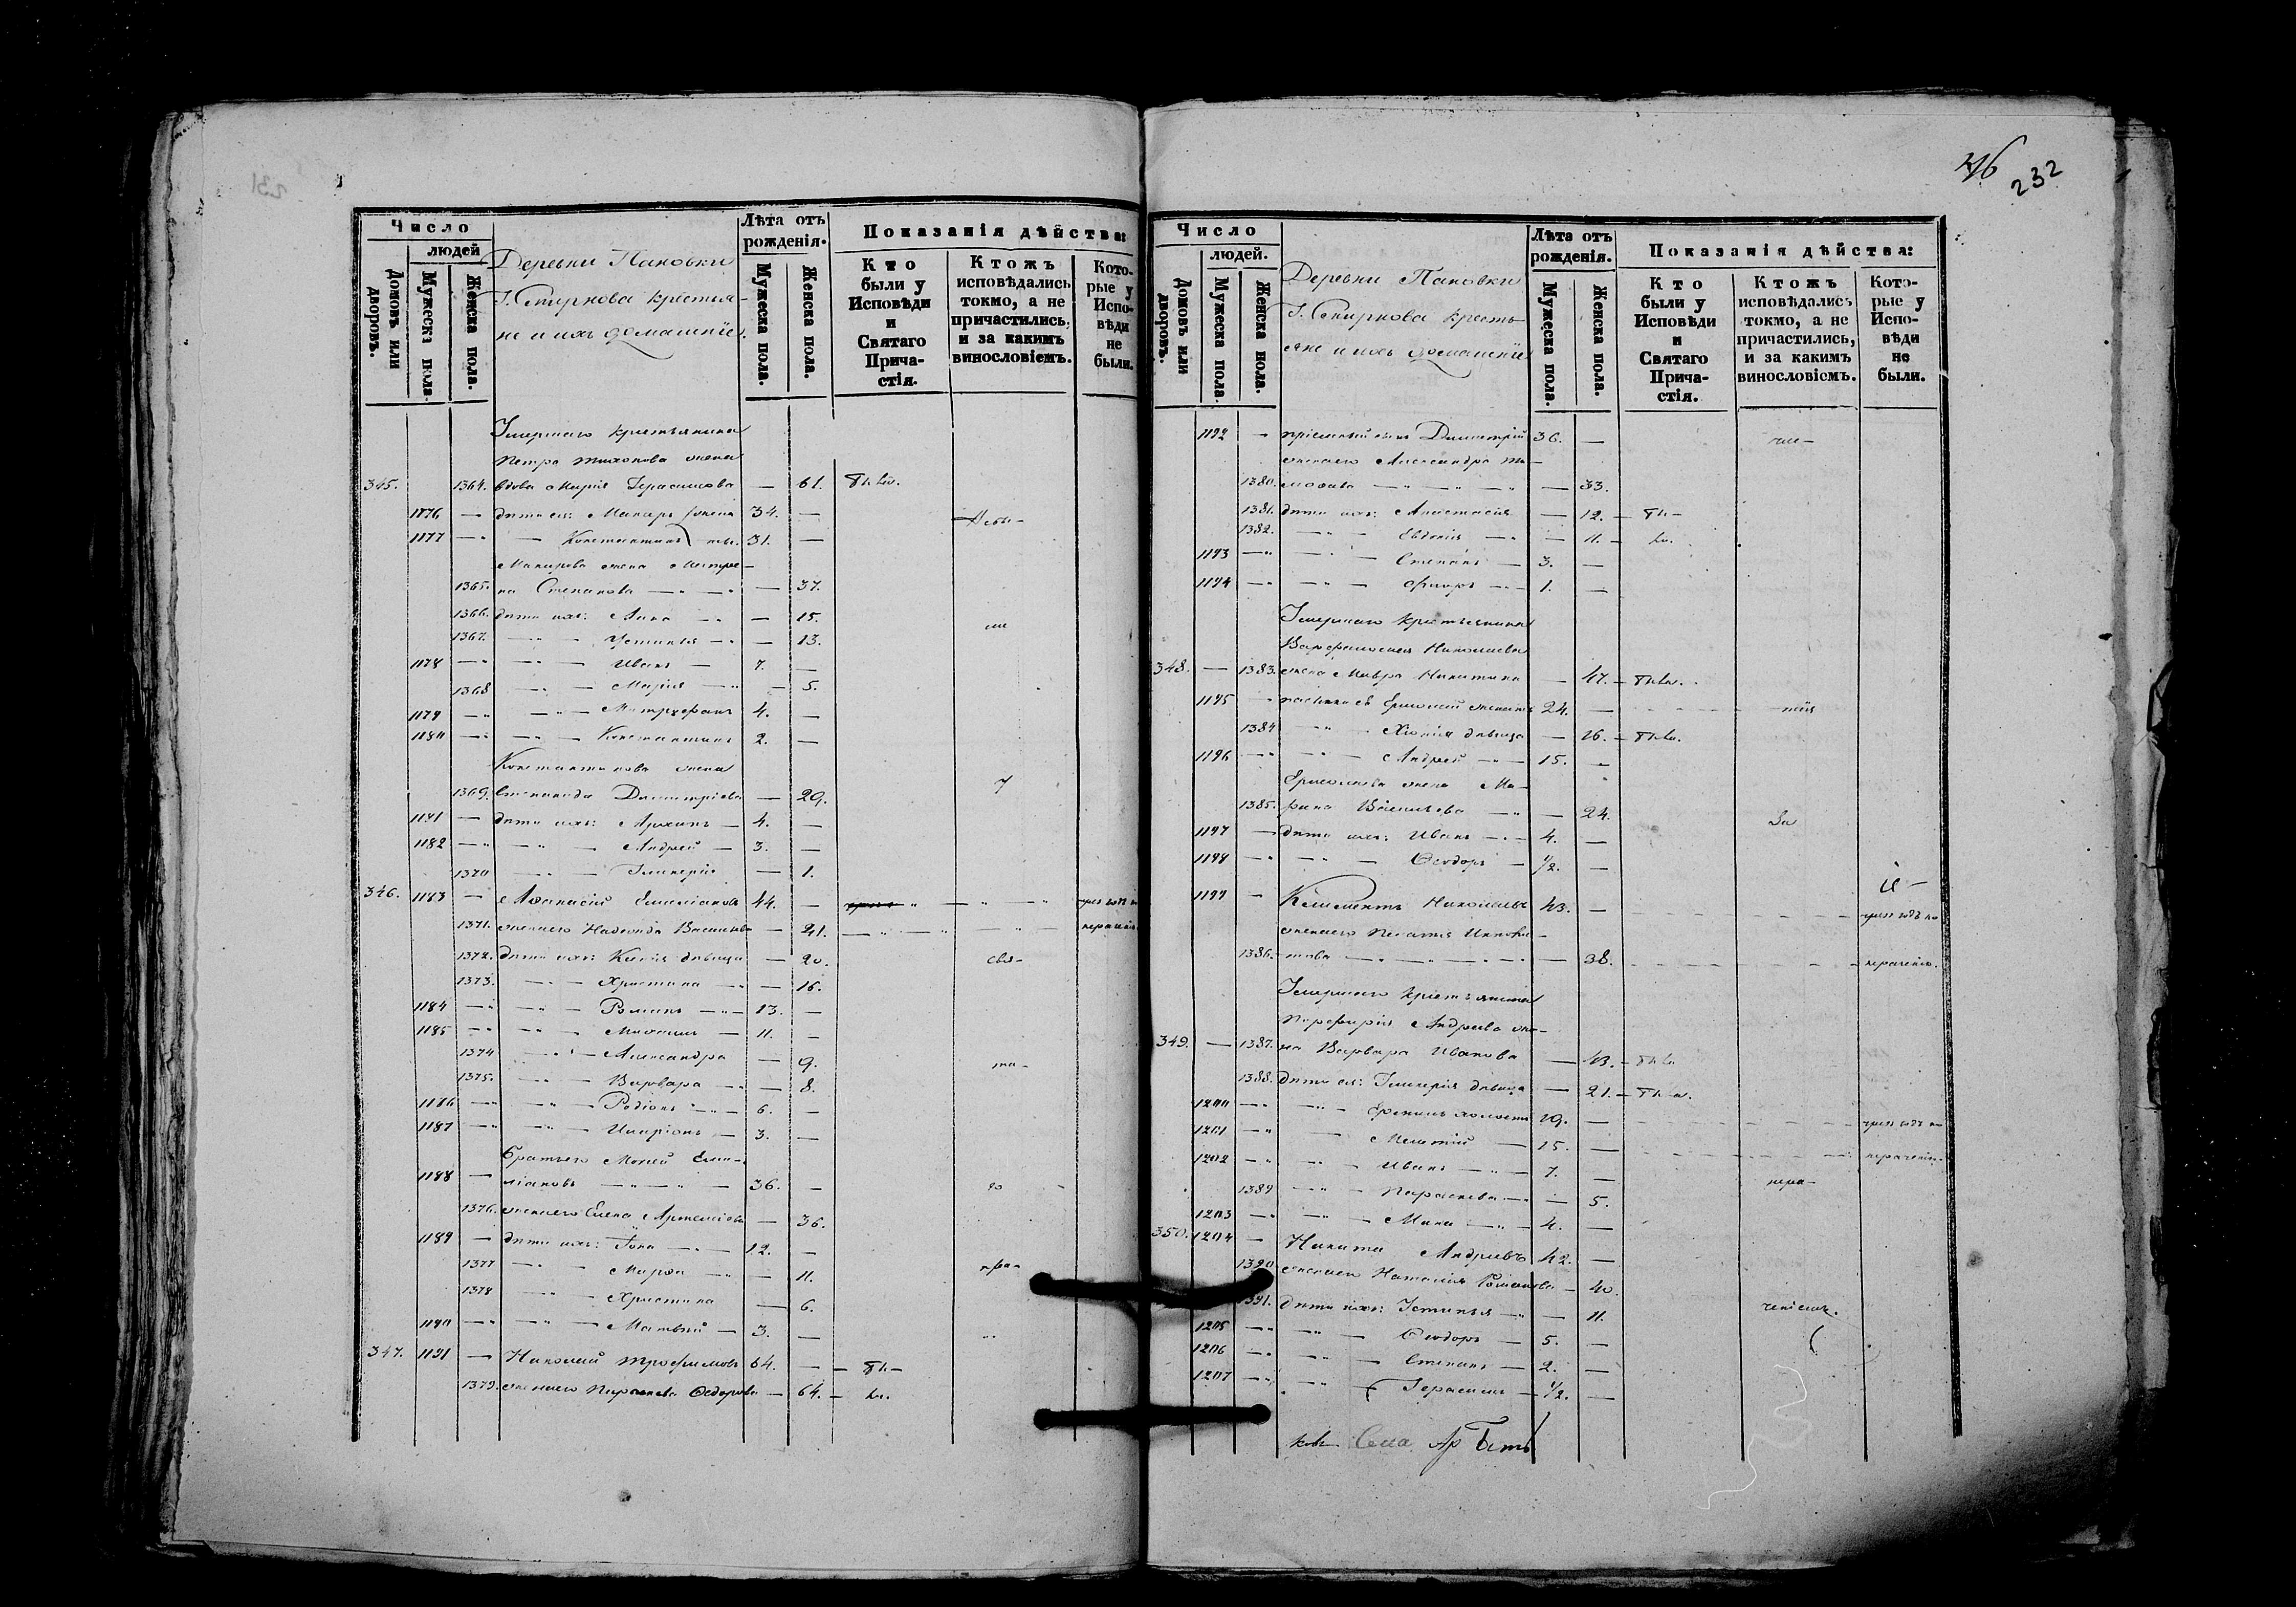 231
Число
людей
Домовъ или дворовъ.
Мужеска пола.
Женска пола.
Деревни Пановки
Г. Смирнова крестья-
не и ихъ домашніе.
Лѣта отъ
рожденія.
Мужеска пола.
Женска пола.
Показанія дѣйства:
Кто
были у
Исповѣди
и
Святаго
Прича-
стія.
Ктожъ
исповѣдались
токмо, а не
причастились,
и за какимъ
винословіемъ.
Кото-
рые у
Испо-
вѣди
не
были.
Умершаго крестьянина
Петра Тихонова жена
345. 1364. вдова Марія Герасимова — 61.
1176 — дѣти ея: Макаръ 34. —
1177 — Константинъ 31. —
Макарова жена Матре-
1365. на Степанова — 37.
1366. дѣти ихъ: Анна — 15.
1367. Устинья — 13.
1178 Иванъ — 7. —
1368 Марія — 5.
1179 Митрофанъ 4. —
1180 Константинъ 2. —
Константинова жена
1369. Степанида Димитріева — 29.
1181 — дѣти ихъ: Архипъ — 4. —
1182 Андрей — 3. —
1370 Гликерія — 1.
346. 1183 — Аѳанасій Емеліановъ 44. —
1371. жена его Надежда Васильева — 41.
1372. дѣти ихъ: Ксенія дѣвица — 20. свя-
1373. Христина — 16.
1184 Романъ — 13. —
1185 Михаилъ — 11. —
1374 Александра — 9. та-
1375. Варвара — 8.
1186 Родіонъ — 6. —
1187 Иларіонъ — 3. —
Братъ его Мокей Еме-
1188 — ліановъ — 36. — го
1376. жена его Елена Артеміева — 36.
1189 — дѣти ихъ: Іона — 12. —
1377 Марѳа — 11. пра-
1378 Христина — 6.
1190 Матвѣй — 3. —
347. 1191 — Николай Трофимовъ 64. —
1379. жена его Параскева Ѳедорова — 64.
232
Число
людей.
Домовъ или дворовъ.
Мужеска пола.
Женска пола.
Деревни Пановки
Г. Смирнова кресть-
яне и ихъ домашніе
Лѣта отъ
рожденія.
Мужеска пола.
Женска пола.
Показанія дѣйства:
Кто
были у
Исповѣди
и
Святаго
Прича-
стія.
Ктожъ
исповѣдались
токмо, а не
причастились,
и за какимъ
винословіемъ.
Кото-
рые у
Испо-
вѣди
не
были.
1192 — пріемный сынъ Димитрій 36. —
жена его Александра Ти-
1380. моѳева — 33.
1381. дѣти ихъ: Анастасія — 12.
1382. Евдокія — 11.
1193 Степанъ — 3. —
1194 Флоръ — 1. —
Умершаго крестьянина
Варфоломея Николаева
348. — 1383. жена Мавра Никитина — 47.
1195 Ермолай женатъ 24. —
1384 Хіонія дѣвица — 26.
1196 Андрей — 15. —
Ермолаева жена Ма-
1385. рина Васильева — 24. За
1197 — дѣти ихъ: Иванъ — 4. —
1198 Ѳеодоръ — 1/2. —
1199 — Климентъ Николаевъ 43. —
жена его Пелагея
1386. — 38. нераченію.
Умершаго крестьянина
Порфирія Андреева же-
349. — 1387. на Варвара Иванова — 43.
1388. дѣти ея: Гликерія дѣвица — 21.
1200 холостъ 19. —
1201 Мелетій — 15. — нераченію.
1202 Иванъ — 7. — нера-
1389 Параскева — 5.
1203 — 4. —
350. 1204 — Никита Андреевъ 42. —
1390 жена его Наталія Романова — 40.
1391. дѣти ихъ: Устинья — 11. ченіемъ.
1205 Ѳеодоръ — 5. —
1206 Степанъ — 2. —
1207 Герасимъ — 1/2. —